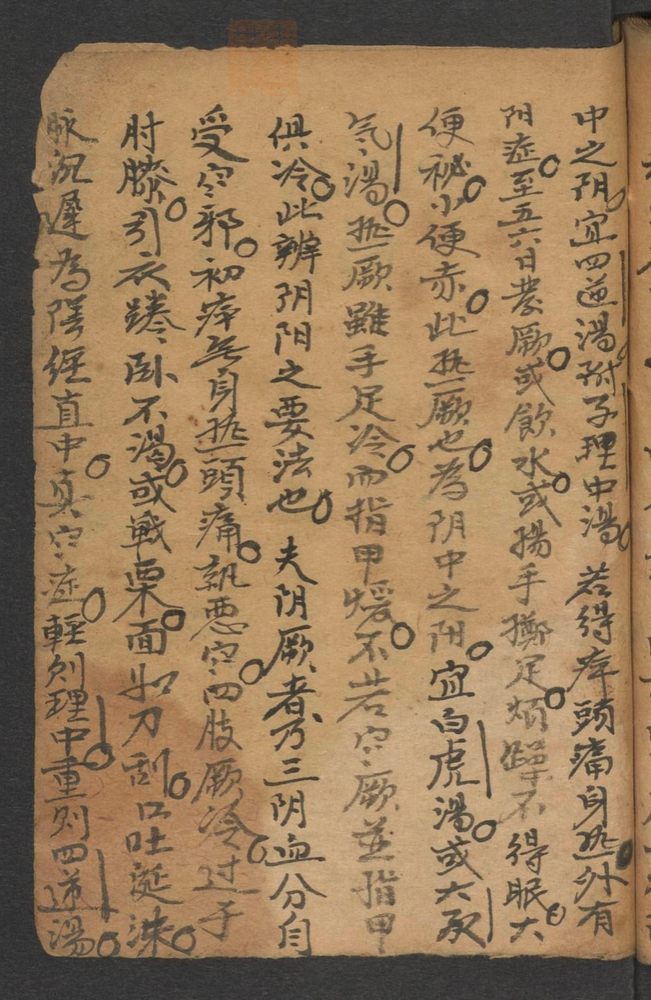 中之阴宜四逆湯附子理中湯 若得疾頭痛身热外有
阳症至五六日发厥或飲水或揚手擲足煩躁不得眠大
便秘小便赤此热厥也為阴中之阳宜白虎湯或大承
气湯热厥雖手足冷而指甲煖不若寒厥並指甲
俱冷此辨阴阳之要法也 夫阴厥者乃三阴血分自
受寒邪初疾無身热頭痛就惡寒四肢厥冷过于
肘膝引衣踡卧不渴或戰栗面如刀刮口吐涎沫
脉沉遲為陰經直中真寒症輕則理中重則四逆湯